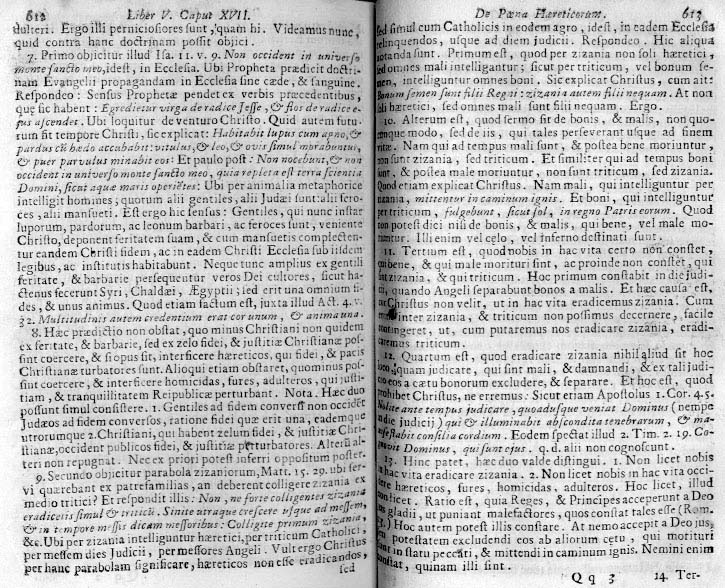 612 Liber V. Caput XVII.
dulteri. Ergo illi perniciosiores sunt, quam hi. Videamus nunc,
quid contra hanc doctrinam possit objici.
7. Primo objicitur illud Isa. 11. v. 9. Non occident in universo
monte sancto meo, idest, in Ecclesia. Ubi Propheta prædicit doctri-
nam Evangelii propagandam in Ecclesia sine cæde, & sanguine.
Respondeo: Sensus Prophetæ pendet ex verbis præcedentibus,
quæ sic habent: Egredietur virga de radice Jesse, & flos de radice e-
jus ascendet. Ubi loquitur de venturo Christo. Quid autem futu-
rum sit tempore Christi, sic explicat: Habitabit lupus cum agno, &
pardus cũ hædo accubabit: vitulus, & leo, & ovis simul morabuntur,
& puer parvulus minabit eos: Et paulo post: Non nocebunt, & non
occident in universo monte sancto meo, quia repleta est terra scientia
Domini, sicut aquæ maris operiẽtes: Ubi per animalia metaphorice
intelligit homines; quorum alii gentiles, alii Judæi sunt: alii fero-
ces, alii mansueti. Est ergo hic sensus: Gentiles, qui nunc instar
luporum, pardorum, ac leonum barbari, ac feroces sunt, veniente
Christo, deponent feritatem suam, & cum mansuetis complecten-
tur eandem Christi fidem, ac in eadem Christi Ecclesia sub iisdem
legibus, ac institutis habitabunt. Neque tunc amplius ex gentili
feritate, & barbarie persequentur veros Dei cultores, sicut ha-
ctenus fecerunt Syri, Chaldæi, Ægyptii; sed erit una omnium fi-
des, & unus animus. Quod etiam factum est, juxta illud Act. 4. v.
32. Multitudinis autem credentium erat cor unum, & anima una.
8. Hæc prædictio non obstat, quo minus Christiani non quidem
ex feritate, & barbarie, sed ex zelo fidei, & justitiæ Christianæ pos-
sint coercere, & si opus sit, interficere hæreticos, qui fidei, & pacis
Christianæ turbatores sunt. Alioqui etiam obstaret, quominus pos-
sint coercere, & interficere homicidas, fures, adulteros, qui justi-
tiam, & tranquillitatem Reipublicæ perturbant. Nota. Hæc duo
possunt simul consistere. 1. Gentiles ad fidem conversi non occidẽt
Judæos ad fidem conversos, ratione fidei quæ erit una, eademque
utrorumque 2. Christiani, qui habent zelum fidei, & justitiæ Chri-
stianæ, occident publicos fidei, & justitiæ perturbatores. Alterũ al-
teri non repugnat. Nec ex priori potest inferri oppositum posterioris
9. Secundo objicitur parabola zizaniorum, Matt. 15. 29. ubi ser-
vi quærebant ex patrefamilias, an deberent colligere zizania ex
medio tritici? Et respondit illis: Non, ne forte colligentes zizania
eradicetis simul & triticũ. Sinite utraque crescere usque ad messem,
& in tempore messis dicam messoribus: Colligite primum zizania,
&c. Ubi per zizania intelliguntur hæretici, per triticum Catholici,
per messem dies Judicii, per messores Angeli. Vult ergo Christus
per hanc parabolam significare, hæreticos non esse eradicandos,
sed
De Pœna Hæreticorum. 613
sed simul cum Catholicis in eodem agro, idest, in eadem Ecclesia
relinquendos, usque ad diem judicii. Respondeo: Hic aliqua
notanda sunt. Primum est, quod per zizania non soli hæretici,
sed omnes mali intelligantur; sicut per triticum, vel bonum se-
men, intelliguntur omnes boni. Sic explicat Christus, cum ait:
Bonum semen sunt filii Regni: zizania autem filii nequam. At non
soli hæretici, sed omnes mali sunt filii nequam. Ergo.
10. Alterum est, quod sermo sit de bonis, & malis, non quo-
cunque modo, sed de iis, qui tales perseverant usque ad finem
vitæ. Nam qui ad tempus mali sunt, & postea bene moriuntur,
non sunt zizania, sed triticum. Et similiter qui ad tempus boni
sunt, & postea male moriuntur, non sunt triticum, sed zizania.
Quod etiam explicat Christus. Nam mali, qui intelliguntur per
zizania, mittentur in caminum ignis. Et boni, qui intelliguntur
per triticum, fulgebunt, sicut sol, in regno Patris eorum. Quod
non potest dici nisi de bonis, & malis, qui bene, vel male mo-
riuntur. Illi enim vel cœlo, vel inferno destinati sunt.
11. Tertium est, quod nobis in hac vita certo non constet,
qui bene, & qui male morituri sint, ac proinde non constet, qui
sint zizania, & qui triticum. Hoc primum constabit in die judi-
cii, quando Angeli separabunt bonos a malis. Et hæc causa est,
cur Christus non velit, ut in hac vita eradicemus zizania. Cum
enim inter zizania, & triticum non possimus decernere, facile
contingeret, ut, cum putaremus nos eradicare zizania, eradi-
caremus triticum.
12. Quartum est, quod eradicare zizania nihil aliud sit hoc
loco, quam judicare, qui sint mali, & damnandi, & ex tali judi-
cio eos a cœtu bonorum excludere, & separare. Et hoc est, quod
prohibet Christus, ne erremus: Sicut etiam Apostolus 1. Cor. 4. 5.
Nolite ante tempus judicare, quoadusque veniat Dominus (nempe
die judicij) qui & illuminabit abscondita tenebrarum, & ma-
nifestabit consilia cordium. Eodem spectat illud 2. Tim. 2. 19. Co-
gnovit Dominus, qui sunt ejus. q. d. alii non cognoscunt.
13. Hinc patet, hæc duo valde distingui. 1. Non licet nobis
in hac vita eradicare zizania. 2. Non licet nobis in hac vita occi-
dere hæreticos, fures, homicidas, adulteros. Hoc licet, illud
non licet. Ratio est, quia Reges, & Principes acceperunt a Deo
jus gladii, ut puniant malefactores, quos constat tales esse (Rom.
13.) Hoc autem potest illis constare. At nemo accepit a Deo jus,
& potestatem excludendi eos ab aliorum cœtu, qui morituri
sunt in statu peccati, & mittendi in caminum ignis. Nemini enim
constat, quinam illi sint.
Qq 3 14. Ter-